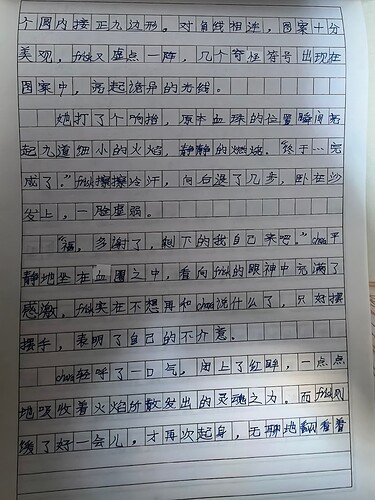 个圆内接正九边形。对角线相连，图案十分
美观，frisk又虚点一阵，几个奇怪符号出现在
图案中，亮起诡异的光线。
她打了个响指，原本血珠的位置瞬间亮
起九道细小的火焰，静静的燃烧。“终于…完
成了。”frisk擦擦冷汗，向后退了几步，卧在沙
发上，一脸虚弱。
“福，多谢了，剩下的我自己来吧。”chara平
静地坐在血圈之中，看向frisk的眼神中充满了
感激。frisk实在不想再和chara说什么了，只好摆
摆手，表明了自己的不介意。
chara轻呼了一口气，闭上了红眸，一点点
地吸收着火焰所散发出的灵魂之力。而frisk则
缓了好一会儿，才再次起身，无聊地翻看着